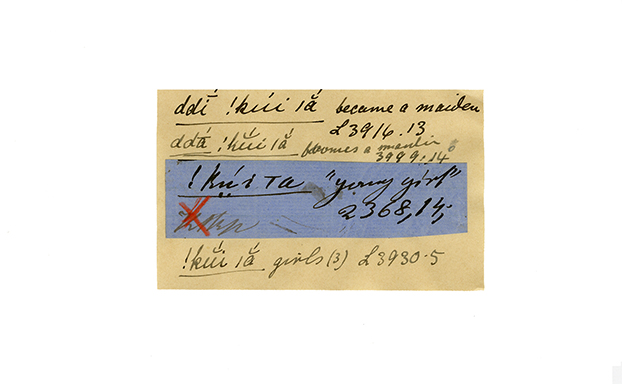 ddí !kúi ıǎ became a maiden
L3916.13
ddá !kǔi ıǎ becomes a maiden
3999.14
!kúi Ta "young girl"
2368,14,
!kǔi ıǎ girls (3) L3930.5